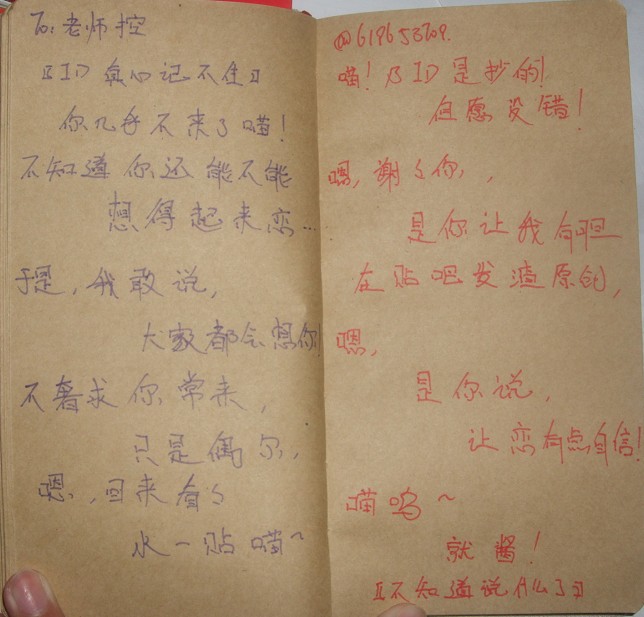 To: 老师控
〖ID真心记不住〗
你几乎不来了喵!
不知道你还能不能
想得起来恋...
于是,我敢说,
大家都会想你!
不奢求你常来,
只是偶尔,
嗯,,回来看看
水一贴喵~
@619653709.
喵!为ID是抄的!
但愿没错!
嗯,谢谢你,,
是你让我有胆
在贴吧发渣原创,
嗯,
是你说,
让恋有点自信!
喵呜~
就酱!
〖不知道说什么了〗